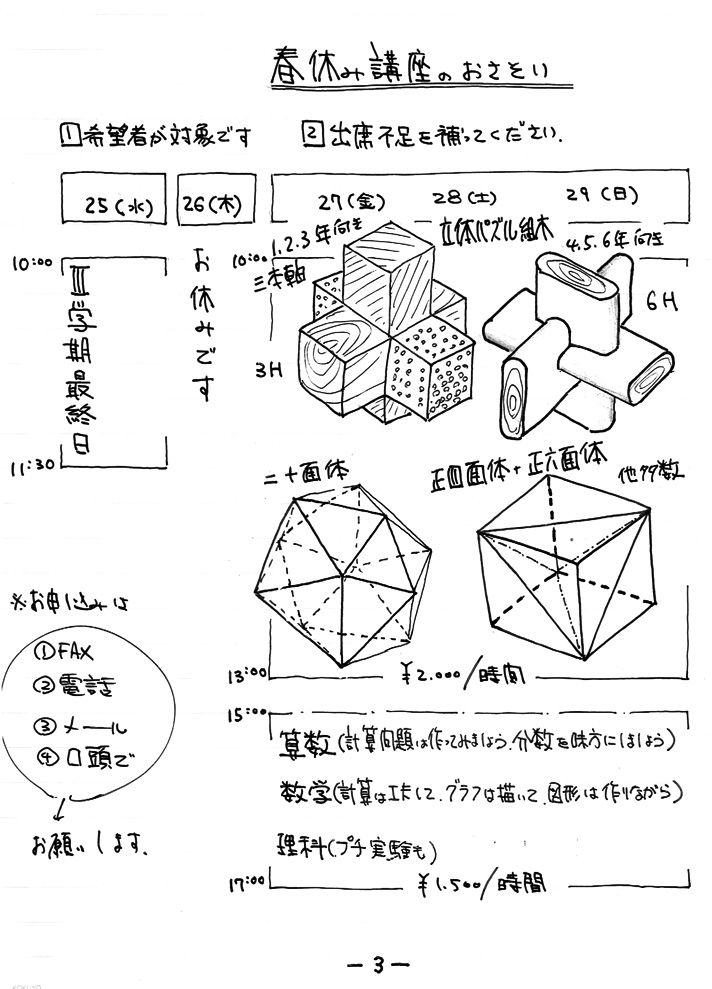 春休み講座のおさそい
1 希望者が対象です
2 出席不足を補ってください.
25(水)
26(木)
27(金)
28(土)
29(日)
10:00
Ⅲ学期最終日
11:30
お休みです
10:00
1.2.3年向き
立体パズル組木
4.5.6年向き
三本軸
3H
6H
二十面体
正四面体+正六面体
他多数
13:00
¥2.000/時間
※お申し込みは
①FAX
②電話
③メール
④口頭で
お願いします.
15:00
算数(計算問題は作ってみましょう.分数を味方にしましょう)
数学(計算は工夫して.グラフは描いて.図形は作りながら)
理科(プチ実験も)
17:00
¥1.500/時間
-3-